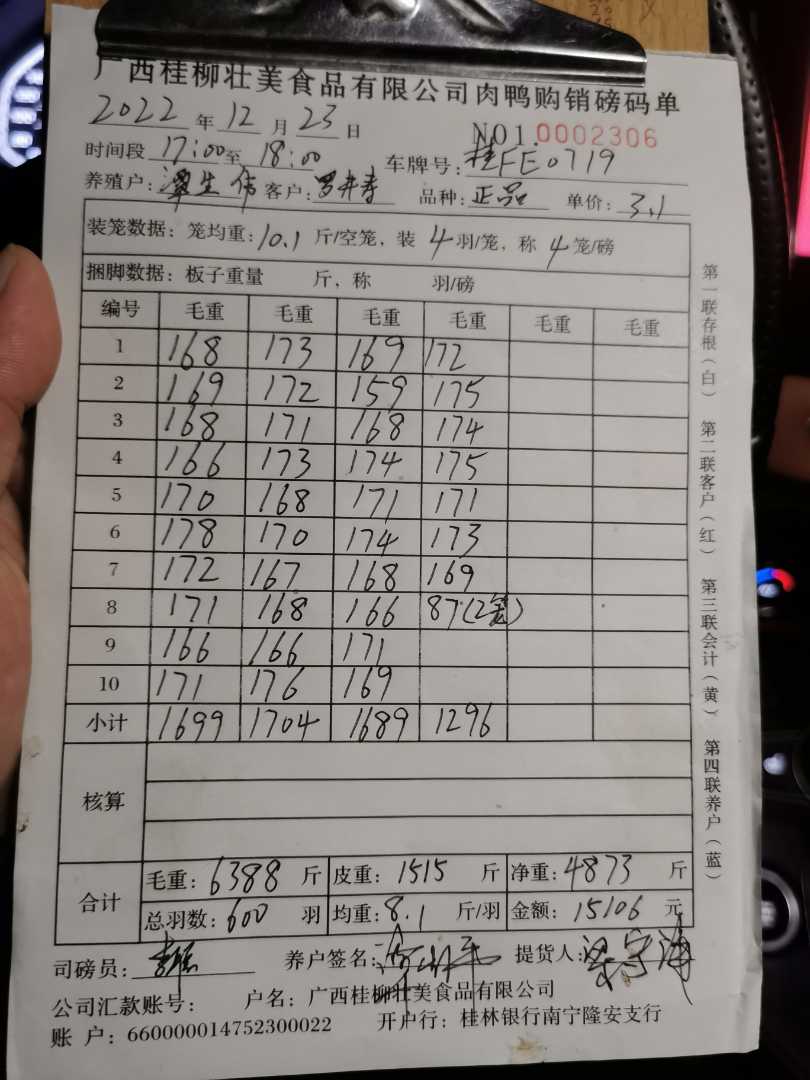 广西桂柳壮美食品有限公司肉鸭购销磅码单
2022 年 12 月 23 日 NO1.0002306
时间段 17:00至 18:00 车牌号: 桂FE0719
养殖户: 覃生伟 客户: 罗井寿 品种: 正品 单价: 3.1
装笼数据: 笼均重: 10.1 斤/空笼, 装 4 羽/笼, 称 4 笼/磅
捆脚数据: 板子重量 斤, 称 羽/磅
编号 毛重 毛重 毛重 毛重 毛重 毛重
1 168 173 169 172
2 169 172 159 175
3 168 171 168 174
4 166 173 174 175
5 170 168 171 171
6 178 170 174 173
7 172 167 168 169
8 171 168 166 87(2笼)
9 166 166 171
10 171 176 169
小计 1699 1704 1689 1296
核算
合计 毛重: 6388 斤 皮重: 1515 斤 净重: 4873 斤
总羽数: 600 羽 均重: 8.1 斤/羽 金额: 15106 元
司磅员: 养户签名: 提货人:
公司汇款账号: 户名: 广西桂柳壮美食品有限公司
账 户: 660000014752300022 开户行: 桂林银行南宁隆安支行
第一联存根(白) 第二联客户(红) 第三联会计(黄) 第四联养户(蓝)